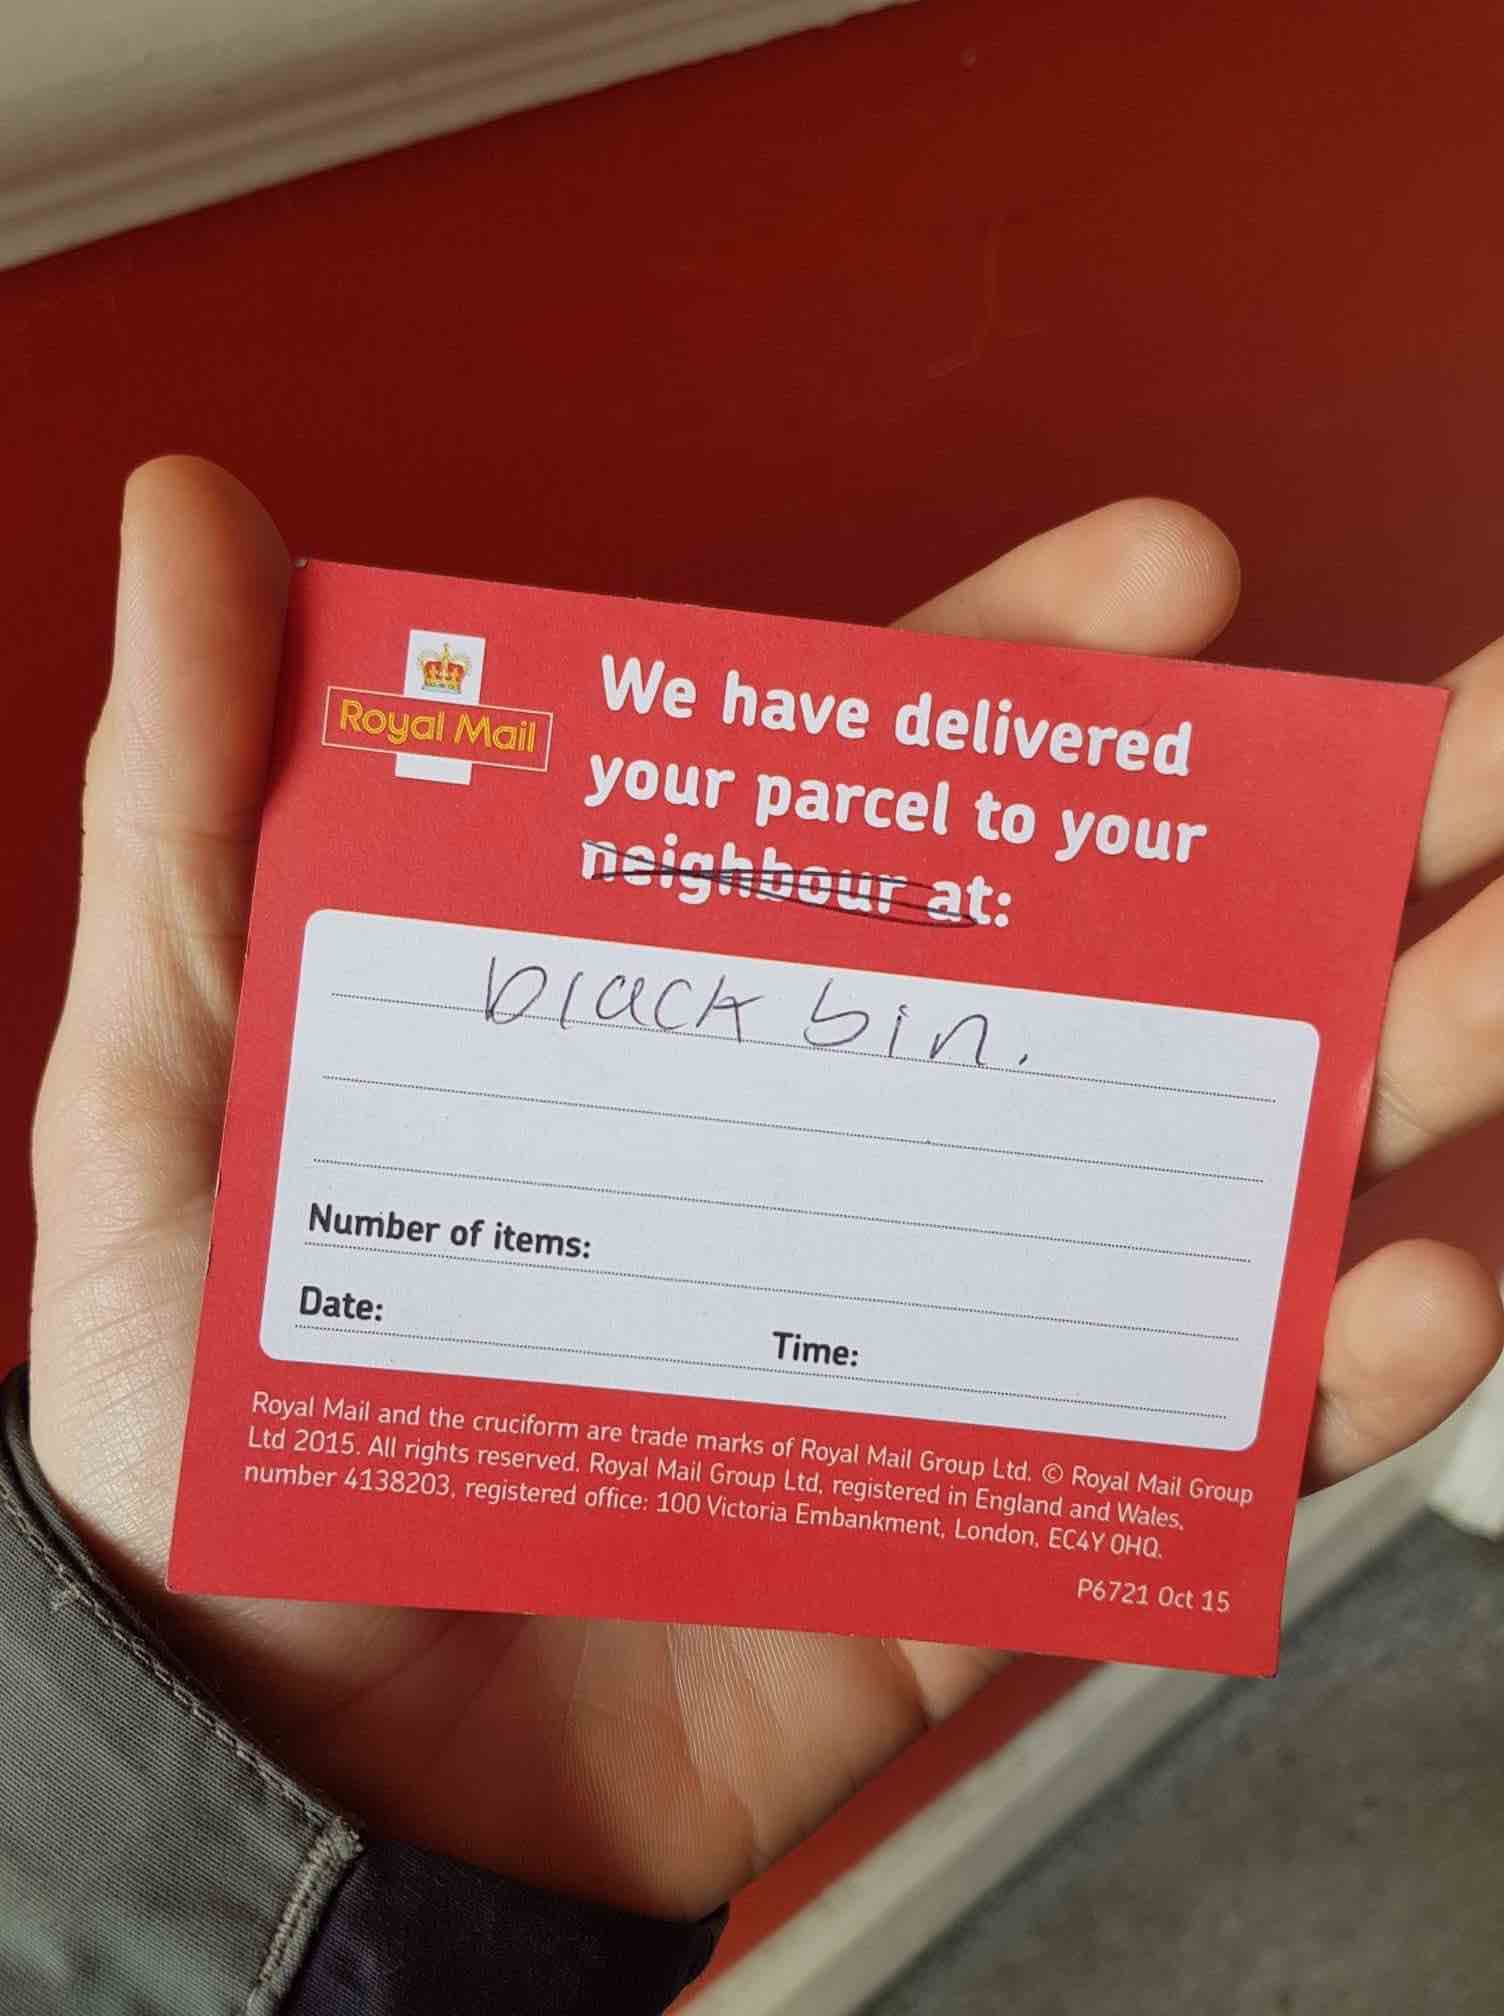 Royal Mail
We have delivered
your parcel to your
neighbour at:
black bin.
Number of items:
Date: Time:
Royal Mail and the cruciform are trade marks of Royal Mail Group Ltd. © Royal Mail Group
Ltd 2015. All rights reserved. Royal Mail Group Ltd, registered in England and Wales,
number 4138203, registered office: 100 Victoria Embankment, London, EC4Y 0HQ.
P6721 Oct 15